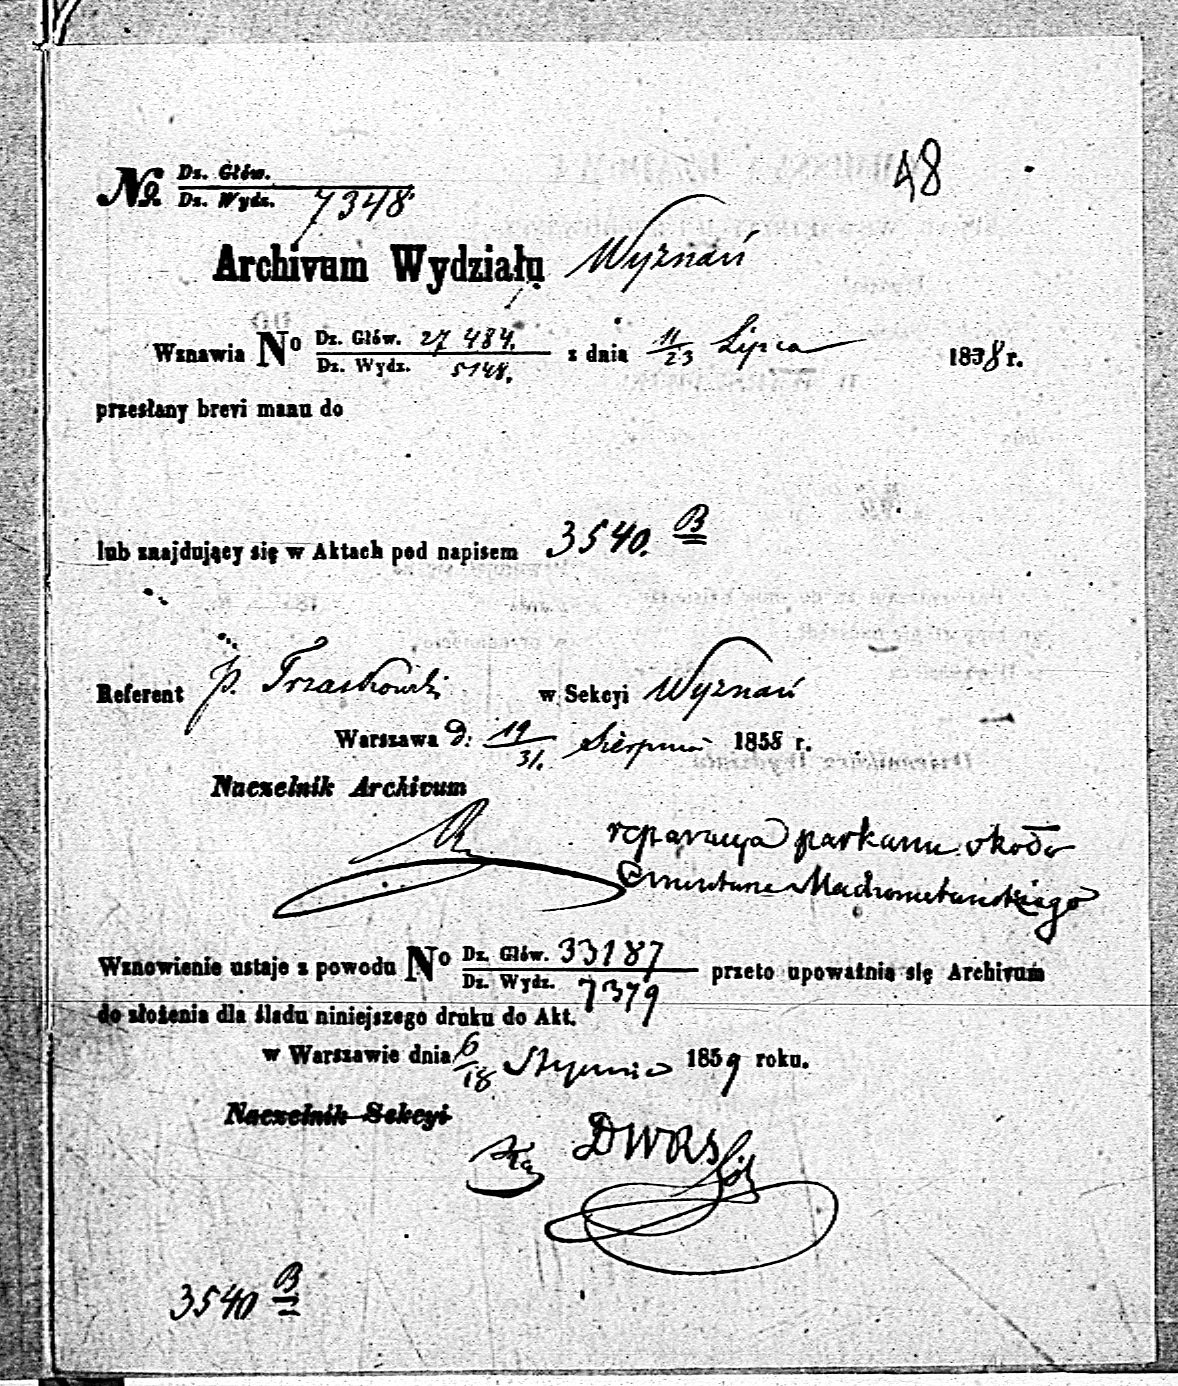 48
No. Dz. Głów.
Dz. Wydz. 7348
Archivum Wydziału Wyznań
Wznawia No Dz. Głów. 27 484. z dnia 11/23 Lipca 1838 r.
Dz. Wydz. 5148.
przesłany brevi manu do
lub znajdujący się w Aktach pod napisem 3540. B
Referent p. Trzaskowski w Sekcyi Wyznań
Warszawa d: 19/31. Sierpnia 1858 r.
Naczelnik Archivum
reparacya parkanu około
Cmentarza Machometańskiego
Wznowienie ustaje z powodu No Dz. Głów. 33187 przeto upoważnia się Archivum
Dz. Wydz. 7379
do złożenia dla śladu niniejszego druku do Akt.
w Warszawie dnia 6/18 Stycznia 1859 roku.
Naczelnik Sekcyi
DWRS
3540 B